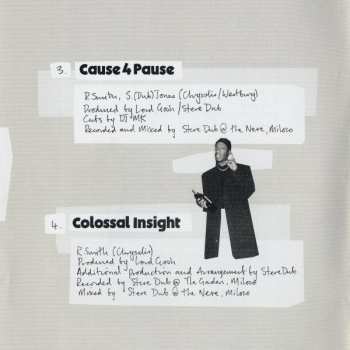 3. Cause 4 Pause
R Smith, S. (Dub) Jones (Chrysalis/Westbury)
Produced by Lord Gosh / Steve Dub
Cuts by DJ MK
Recorded and Mixed by Steve Dub @ the Neve, Miloco
4. Colossal Insight
R Smith (Chrysalis)
Produced by Lord Gosh
Additional Production and Arrangement by Steve Dub
Recorded by Steve Dub @ The Garden, Miloco
Mixed by Steve Dub @ the Neve, Miloco